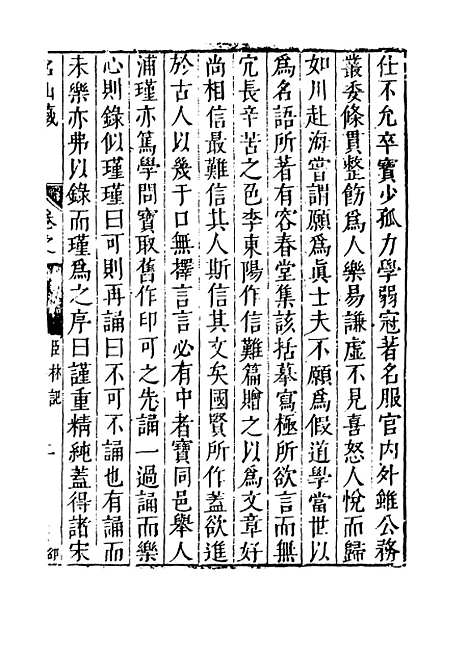 仕不允卒寶少孤力學弱冠著名服官内外雖公務
叢委條貫整飭爲人樂易謙虚不見喜怒人悅而歸
如川赴海嘗謂願爲眞士夫不願爲假道學當世以
爲名語所著有容春堂集該括摹寫極所欲言而無
冗長辛苦之色李東陽作信難篇贈之以爲文章好
尚相信最難信其人斯信其文矣國賢所作蓋欲進
於古人以幾于口無擇言言必有中者寶同邑舉人
浦瑾亦篤學問寶取舊作印可之先誦一過誦而樂
心則錄似瑾瑾曰可則再誦曰不可不誦也有誦而
未樂亦弗以錄而瑾爲之序曰謹重精純蓋得諸宋
名山藏
卷之
臣林記